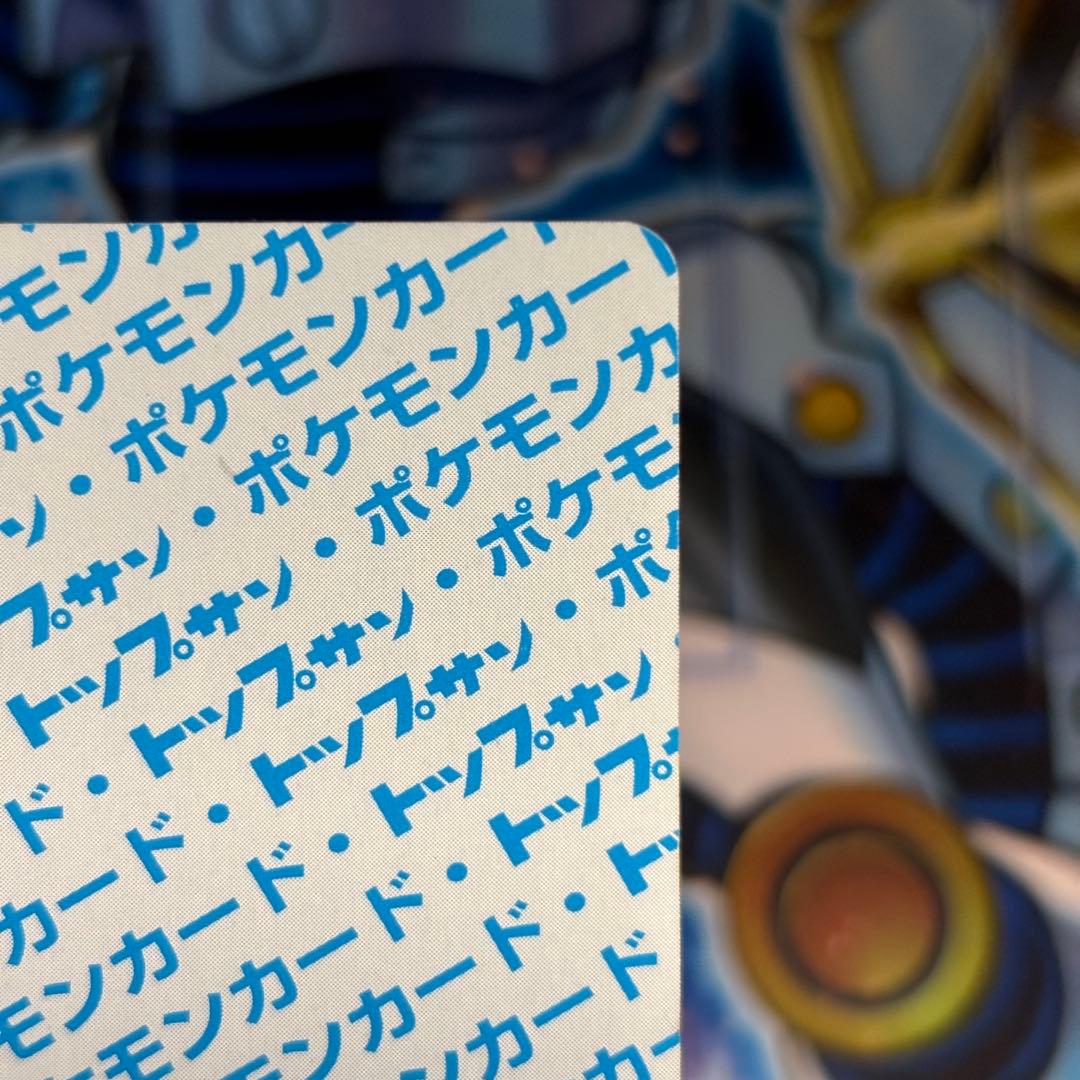 モンカ
ポケモンカー
ン・ポケモンカード
プサン・ポケモンカード
トップサン・ポケモンカ
ド・トップサン・ポケモ
カード・トップサン・ポ
モンカード・トップサン
モンカード・トップ
ンカード・トッ
ンカード
カー